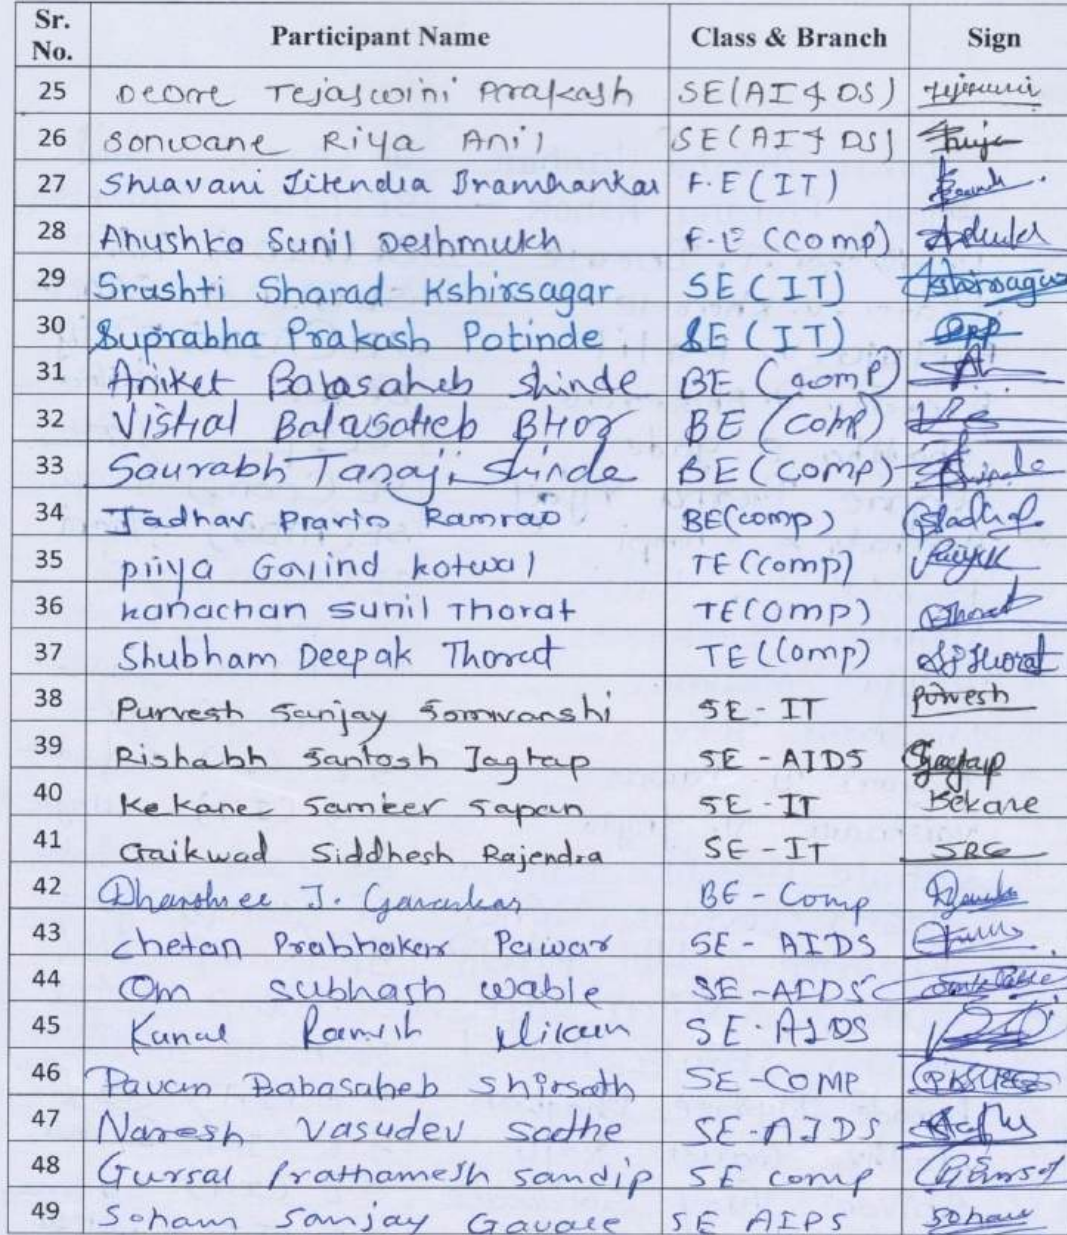 Sr. No. Participant Name Class & Branch Sign
25 Deore Tejaswini Prakash SE(AI & DS)
26 Sonwane Riya Anil SE(AI & DS)
27 Shravani Jitendra Bramhankar F.E (IT)
28 Anushka Sunil Deshmukh F.E (comp)
29 Srushti Sharad Kshirsagar SE (IT) Kshirsagar
30 Suprabha Prakash Potinde SE (IT)
31 Aniket Balasaheb Shinde BE (comp)
32 Vishal Balasaheb BHor BE (comp)
33 Saurabh Tanaji Shinde BE (comp)
34 Jadhav Pravin Ramrao BE(comp)
35 priya Govind kotwal TE (comp)
36 kanachan sunil Thorat TE(omp) Thorat
37 Shubham Deepak Thorat TE (comp) Thorat
38 Purvesh Sanjay Somvanshi SE - IT Purvesh
39 Rishabh Santosh Jagtap SE - AIDS Jagtap
40 Kekane Sameer Sapan SE - IT Bekane
41 Gaikwad Siddhesh Rajendra SE - IT SRG
42 Dhanshree J. BE - Comp
43 Chetan Prabhakar Pawar SE - AIDS
44 Om Subhash Wable SE - AIDS
45 Kunal Ramesh SE - AIDS
46 Pavan Babasaheb Shirsath SE - COMP
47 Naresh Vasudev Sathe SE - AIDS
48 Gursal Prathamesh Sandip SE comp
49 Soham Sanjay Gavale SE AIDS Soham